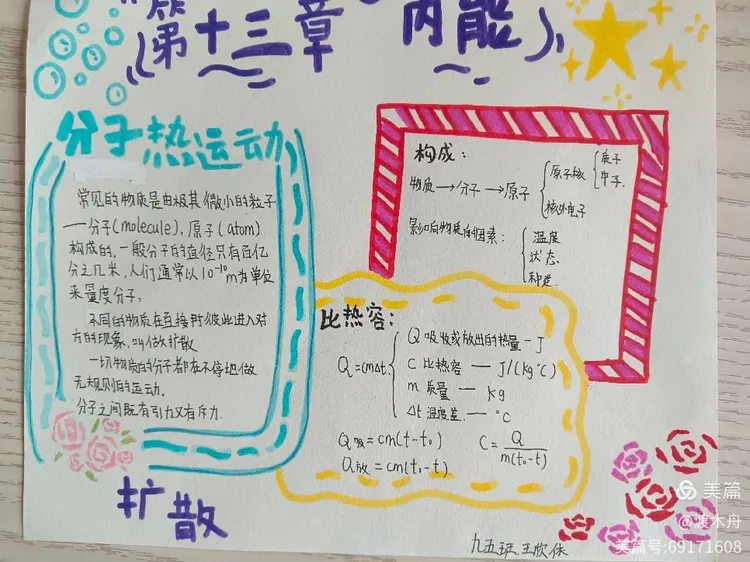 第十三章 内能
分子热运动
常见的物质是由极其微小的粒子
——分子(molecule)、原子(atom)
构成的。一般分子的直径只有百亿
分之几米,人们通常以10⁻¹⁰m为单位
来量度分子。
不同的物质在互接时彼此进入对
方的现象,叫做扩散
一切物质的分子都在不停地做
无规则的运动。
分子之间既有引力又有斥力.
扩散
构成:
物质→分子→原子
原子核
质子
中子.
核外电子
影响物质的因素:
温度
状态.
种类.
比热容:
Q=cmΔt
Q 吸收或放出的热量-J
C 比热容 — J/(kg℃)
m 质量 — kg
Δt 温度差.— ℃
Q吸=cm(t-t₀)
Q放=cm(t₀-t)
C=Q/m(t₀-t)
九五班.王欣
美篇
@渡木舟
美篇号:69171608